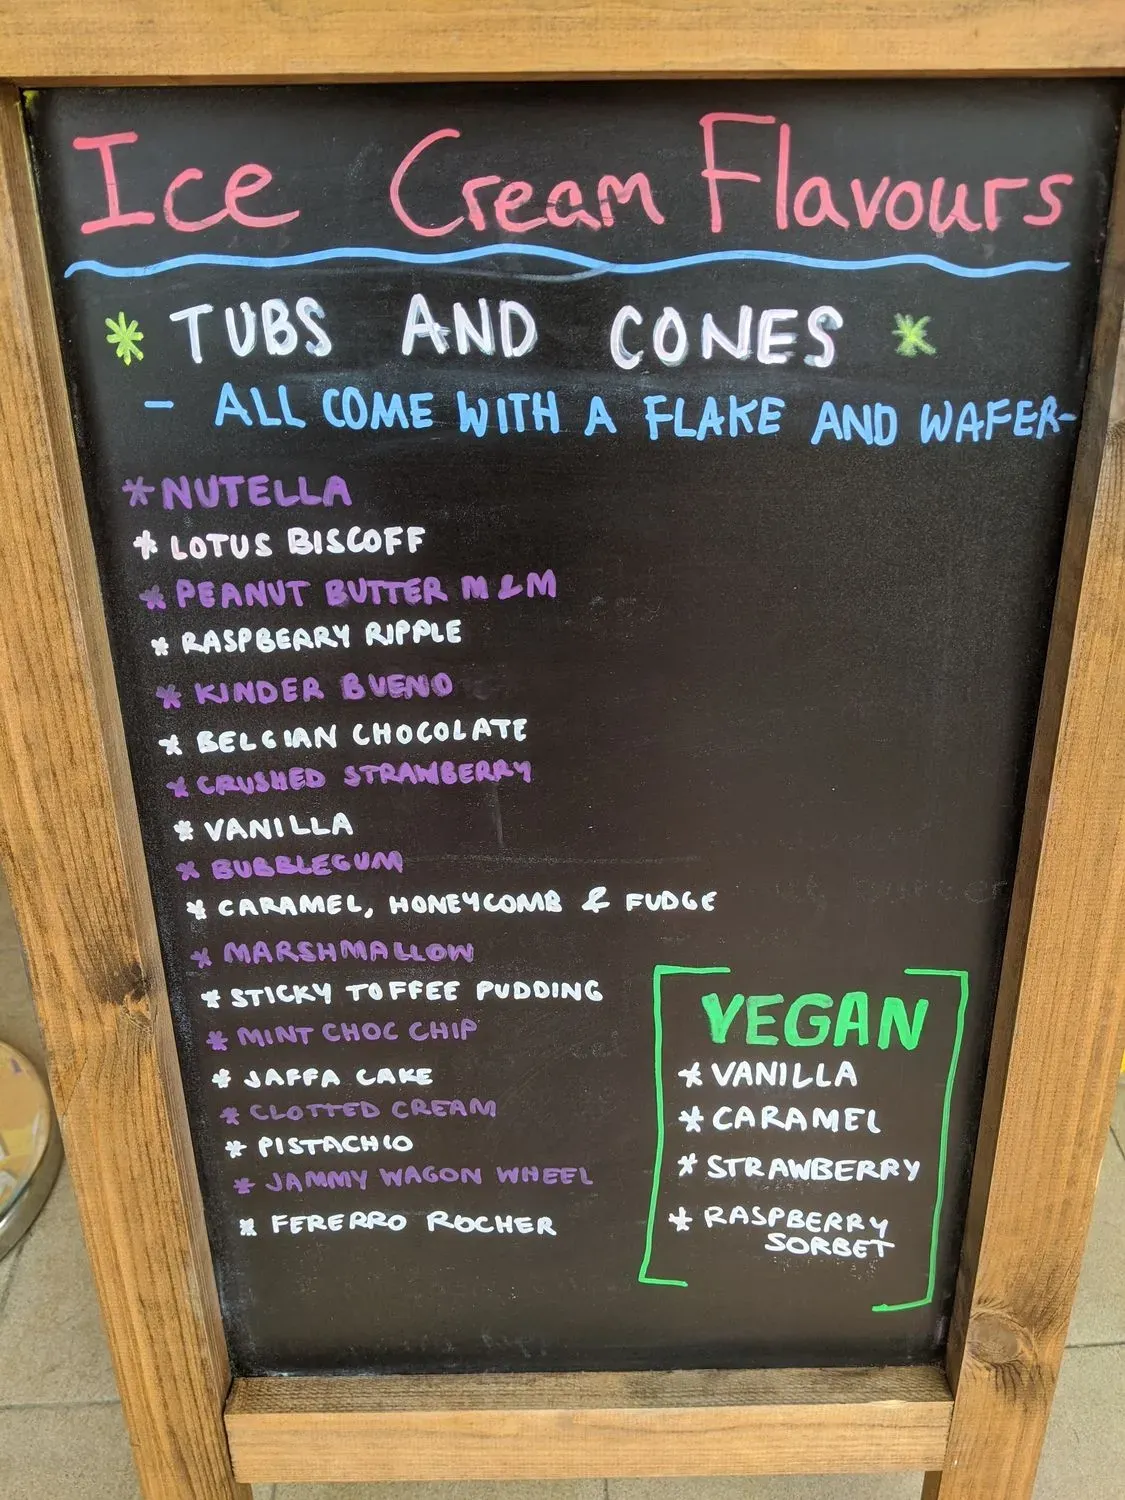 Ice Cream Flavours
* TUBS AND CONES *
- ALL COME WITH A FLAKE AND WAFER-
* NUTELLA
* LOTUS BISCOFF
* PEANUT BUTTER M & M
* RASPBERRY RIPPLE
* KINDER BUENO
* BELGIAN CHOCOLATE
* CRUSHED STRAWBERRY
* VANILLA
* BUBBLEGUM
* CARAMEL, HONEYCOMB & FUDGE
* MARSHMALLOW
* STICKY TOFFEE PUDDING
* MINT CHOC CHIP
* JAFFA CAKE
* CLOTTED CREAM
* PISTACHIO
* JAMMY WAGON WHEEL
* FERERRO ROCHER
VEGAN
* VANILLA
* CARAMEL
* STRAWBERRY
* RASPBERRY
SORBET